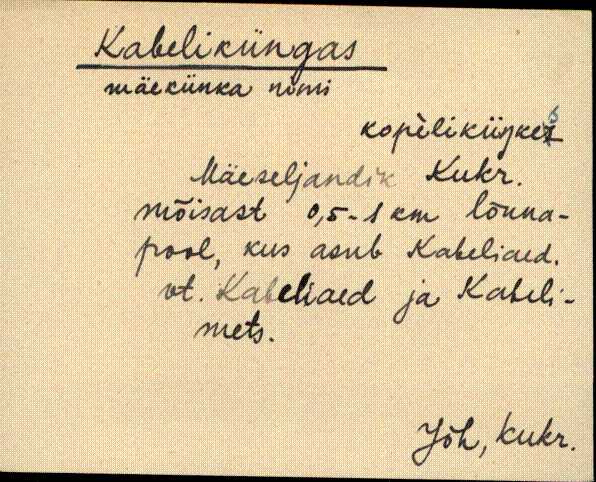 Kabeliküngas
mäekünka nimi
kopèliküŋkez
Mäeseljandik Kukr.
mõisast 0,5-1 km lõuna-
pool, kus asub Kabeliaed.
vt. Kabeliaed ja Kabeli-
mets.
Jõh, Kukr.